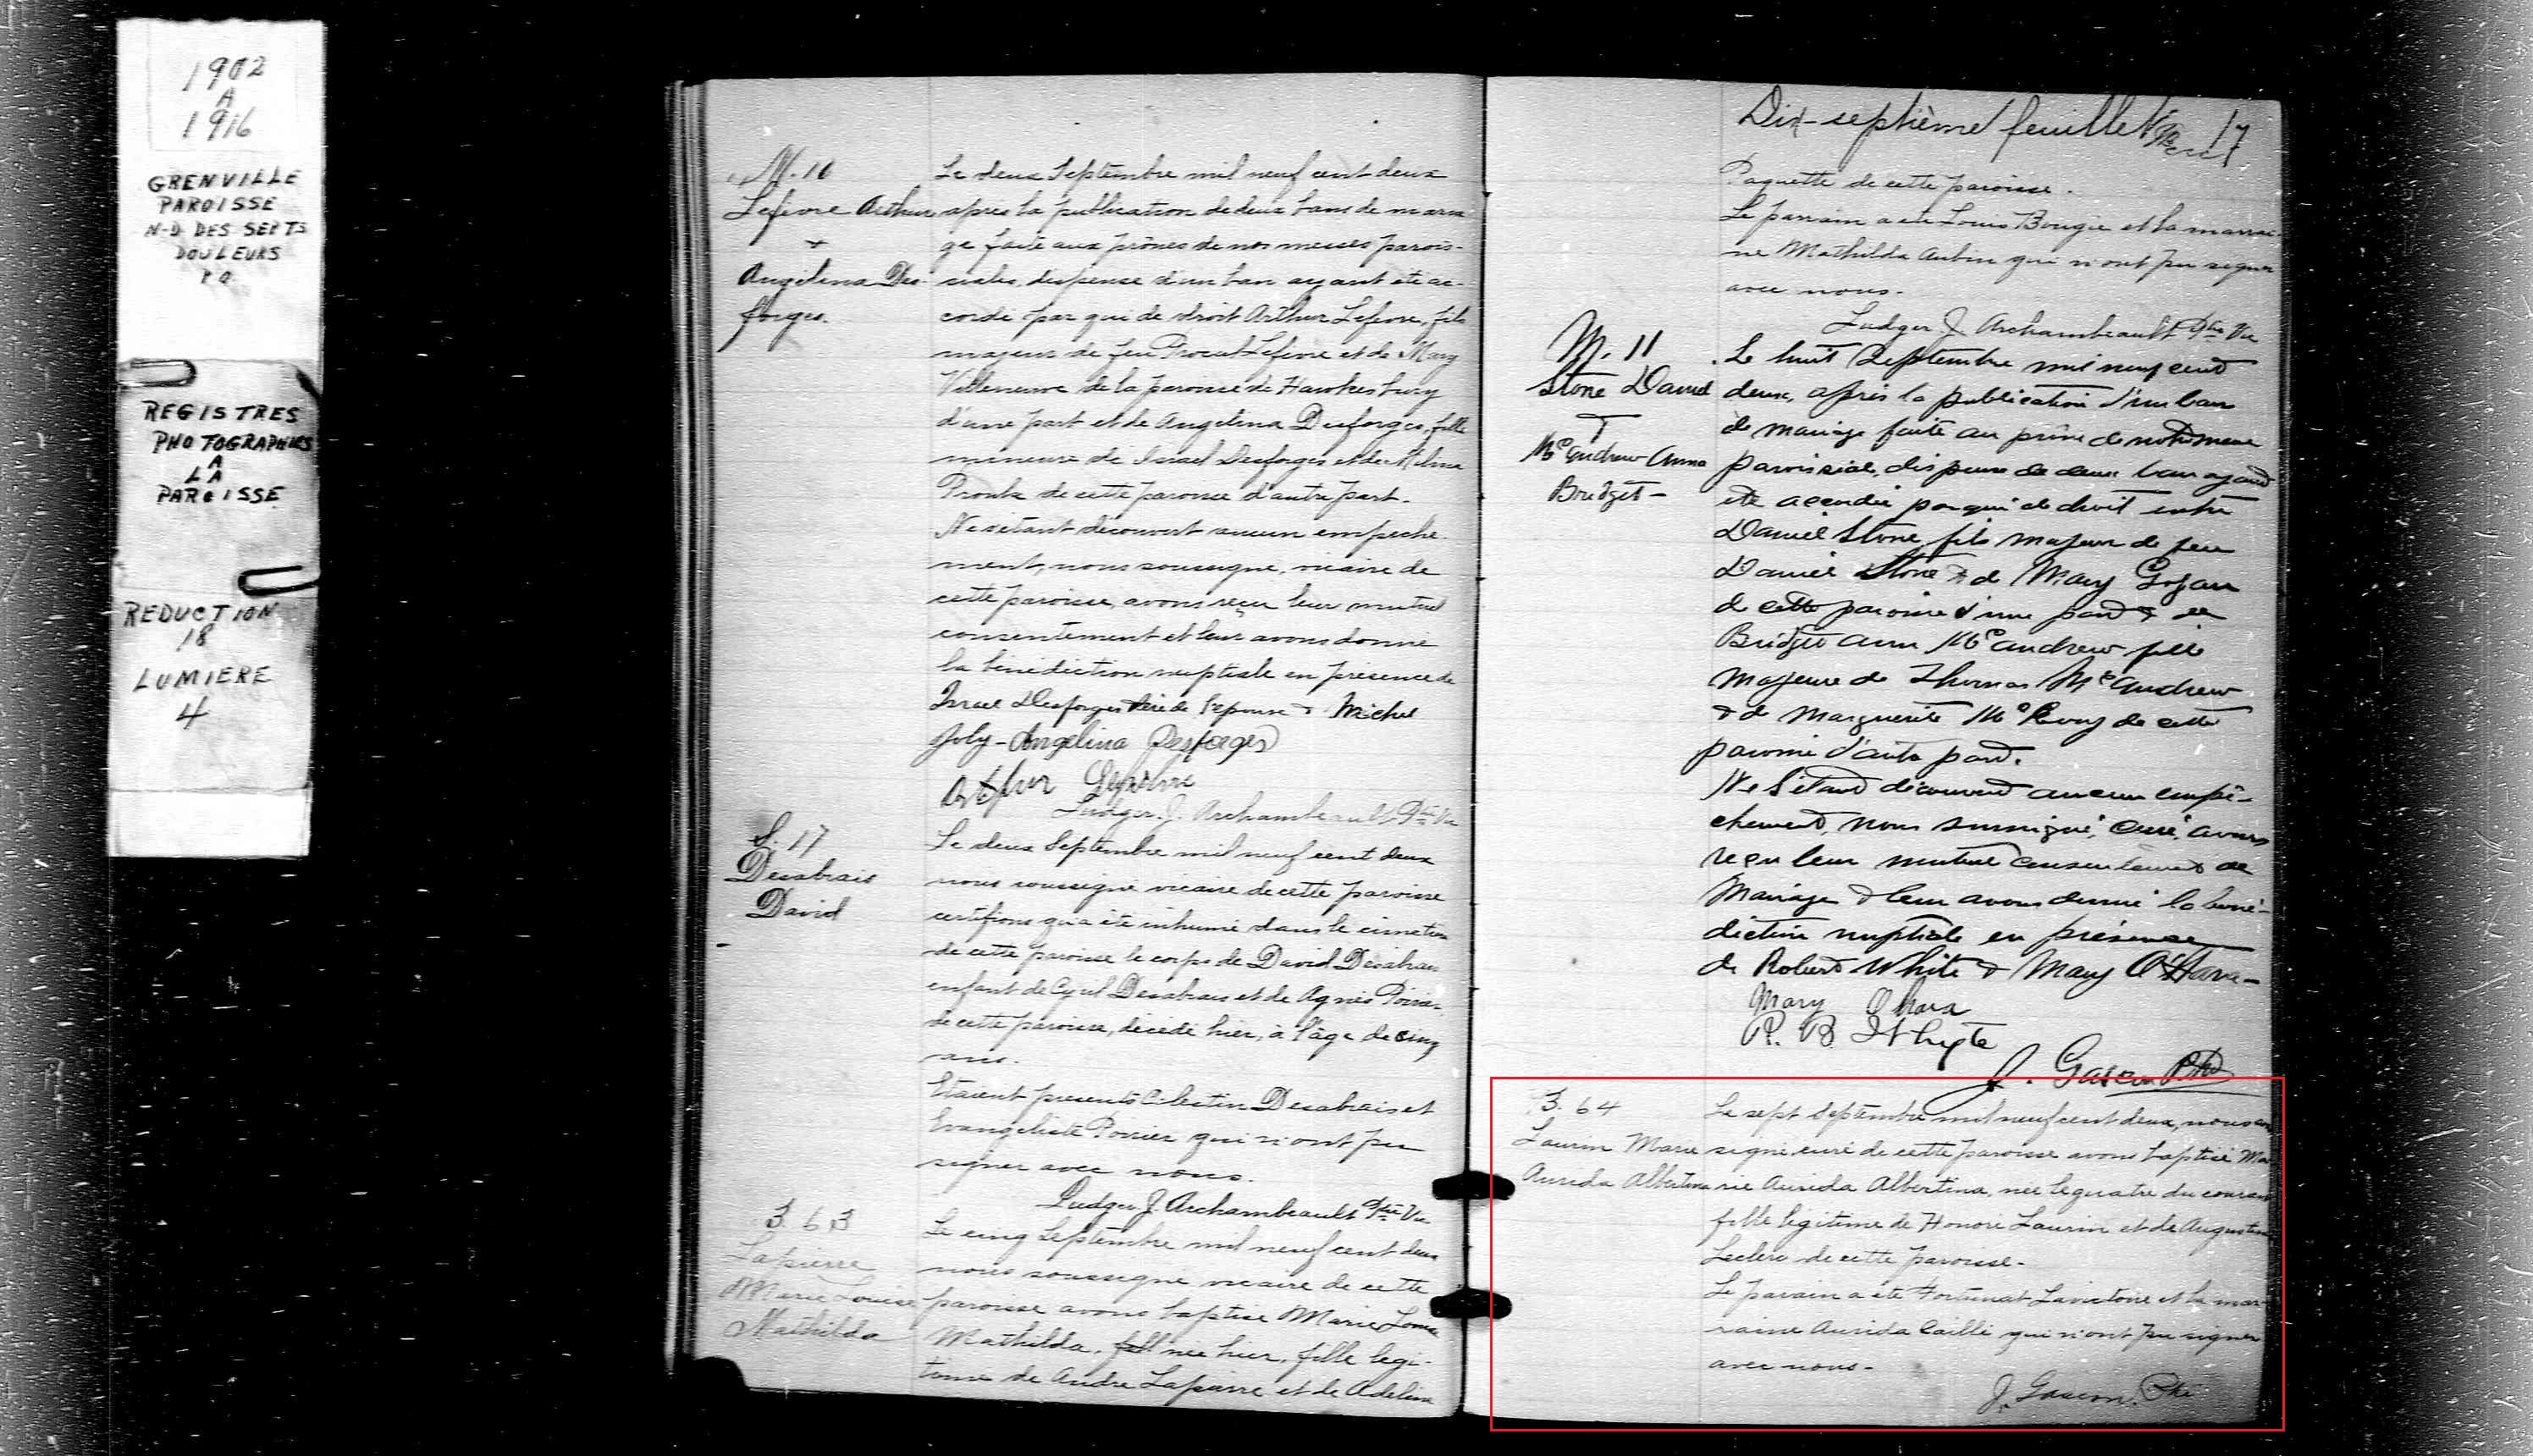 1902
A
1916
GRENVILLE
PAROISSE
N-D DES SEPTS
DOULEURS
P Q
REGISTRES
PHOTOGRAPHIES
A
LA
PAROISSE
REDUCTION
18
LUMIERE
4
M. 10
Lefevre Arthur
+
Angelina Des-
forges.
Le deux Septembre mil neuf cent deux
apres la publication de deux bans de maria-
ge faite aux prônes de nos messes parois-
siales, dispense d'un ban ayant été ac-
cordé par qui de droit Arthur Lefevre, fils
majeur de feu Lefevre et de Mary
Villeneuve de la paroisse de Hawkesbury
d'une part et de Angelina Desforges, fille
mineure de Israel Desforges et de
Proulx de cette paroisse d'autre part.
Ne s'étant découvert aucun empeche-
ment, nous soussigné, vicaire de
cette paroisse, avons reçu leur mutuel
consentement et leur avons donné
la bénédiction nuptiale en présence de
Israel Desforges père de l'epouse & Michel
Joly - Angelina Desforges
Arthur Lefevre
Ludger J. Archambeault Ptre Vic
S. 17
Desabrais
David
Le deux Septembre mil neuf cent deux
nous soussigné vicaire de cette paroisse
certifions qu'a été inhumé dans le cimetière
de cette paroisse le corps de David Desabrais
enfant de Cyril Desabrais et de Agnès Poirier
de cette paroisse, décédé hier, à l'âge de cinq
ans.
Etaient presents Celestin Desabrais et
Evangeliste Poirier qui n'ont pu
signer avec nous.
Ludger J. Archambeault Ptre Vic
B. 63
Lapierre
Marie Louise
Mathilda
Le cinq Septembre mil neuf cent deux
nous soussigné vicaire de cette
paroisse avons baptisé Marie Louise
Mathilda, née hier, fille legi-
time de Andre Lapierre et de Adelina
Dix-septième feuillet 17
Paquette de cette paroisse.
Le parrain a été Louis Bougie et la marrai-
ne Mathilda Aubin qui n'ont pu signer
avec nous.
Ludger J. Archambeault Ptre Vic
M. 11
Stone Daniel
+
McAndrew Anna
Bridget -
Le huit Septembre mil neuf cent
deux, après la publication d'un ban
de mariage faite au prône de notre messe
paroissiale, dispense de deux bans ayant
été accordée par qui de droit entre
Daniel Stone, fils majeur de feu
Daniel Stone & de Mary
de cette paroisse d'une part & de
Bridget Ann McAndrew fille
majeure de Thomas McAndrew
& de Marguerite de cette
paroisse d'autre part.
Ne s'étant découvert aucun empê-
chement, nous soussigné, curé, avons
reçu leur mutuel consentement de
mariage & leur avons donné la béné-
diction nuptiale en présence
de Robert White & Mary O'Hara -
Mary Ohara
R. B. Whyte
J. Gascon Ptre
B. 64
Laurin Marie
Aurida Albertina
Le sept Septembre mil neuf cent deux, nous sous-
signé curé de cette paroisse avons baptisé Ma-
rie Aurida Albertina, née le quatre du courant
fille légitime de Honoré Laurin et de Augustine
Leclerc de cette paroisse.
Le parrain a été Fortunat Lavictoire et la mar-
raine Aurida Caillé qui n'ont pu signer
avec nous -
J. Gascon. Ptre